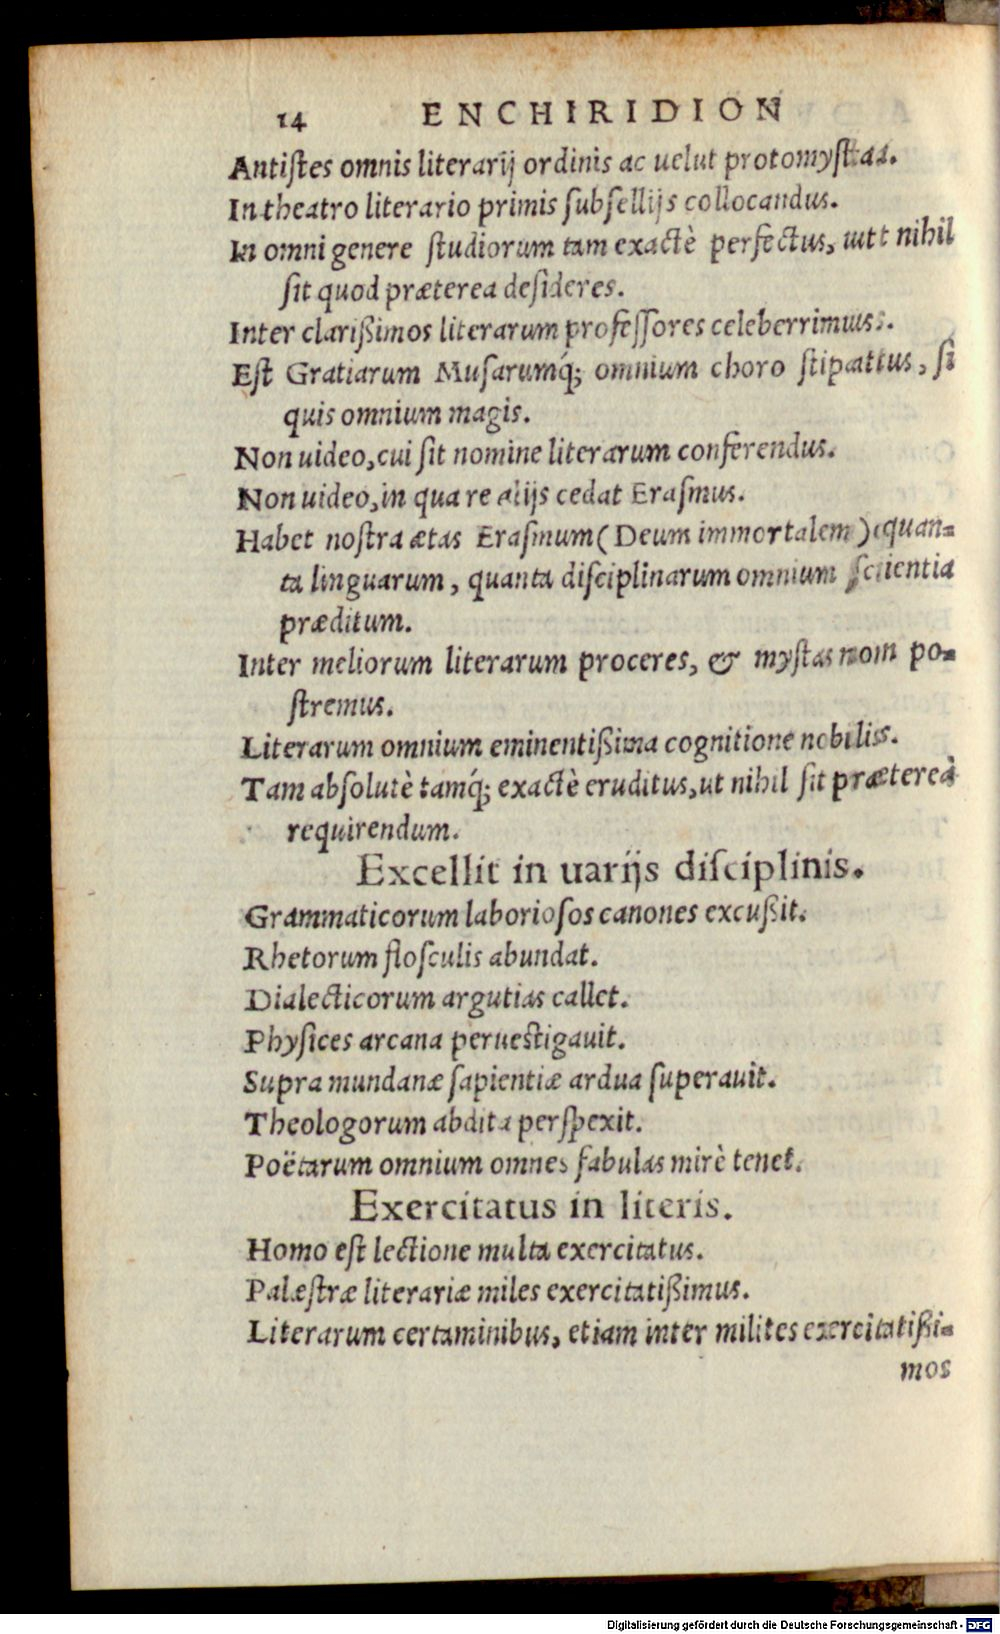 14 ENCHIRIDION
Antiſtes omnis literarij ordinis ac uelut protomyſtaa.
In theatro literario primis ſubſellijs collocandus.
In omni genere ſtudiorum tam exactè perfectus, utt nihil
ſit quod præterea deſideres.
Inter clarißimos literarum profeſſores celeberrimus.
Eſt Gratiarum Muſarumq́; omnium choro ſtipattus, ſi
quis omnium magis.
Non uideo, cui ſit nomine literarum conferendus.
Non uideo, in qua re alijs cedat Eraſmus.
Habet noſtra ætas Eraſmum (Deum immortalem) quan-
ta linguarum, quanta diſciplinarum omnium ſcientia
præditum.
Inter meliorum literarum proceres, & myſtas nom po-
ſtremus.
Literarum omnium eminentißima cognitione nobilis.
Tam abſolutè tamq́; exactè eruditus, ut nihil ſit prætereà
requirendum.
Excellit in uarijs diſciplinis.
Grammaticorum laborioſos canones excußit.
Rhetorum floſculis abundat.
Dialecticorum argutias callet.
Phyſices arcana perueſtigauit.
Supra mundanæ ſapientiæ ardua ſuperauit.
Theologorum abdita perſpexit.
Poëtarum omnium omnes fabulas mirè tenet.
Exercitatus in literis.
Homo eſt lectione multa exercitatus.
Palæſtræ literariæ miles exercitatißimus.
Literarum certaminibus, etiam inter milites exercitatißi-
mos
Digitalisierung gefördert durch die Deutsche Forschungsgemeinschaft - DFG